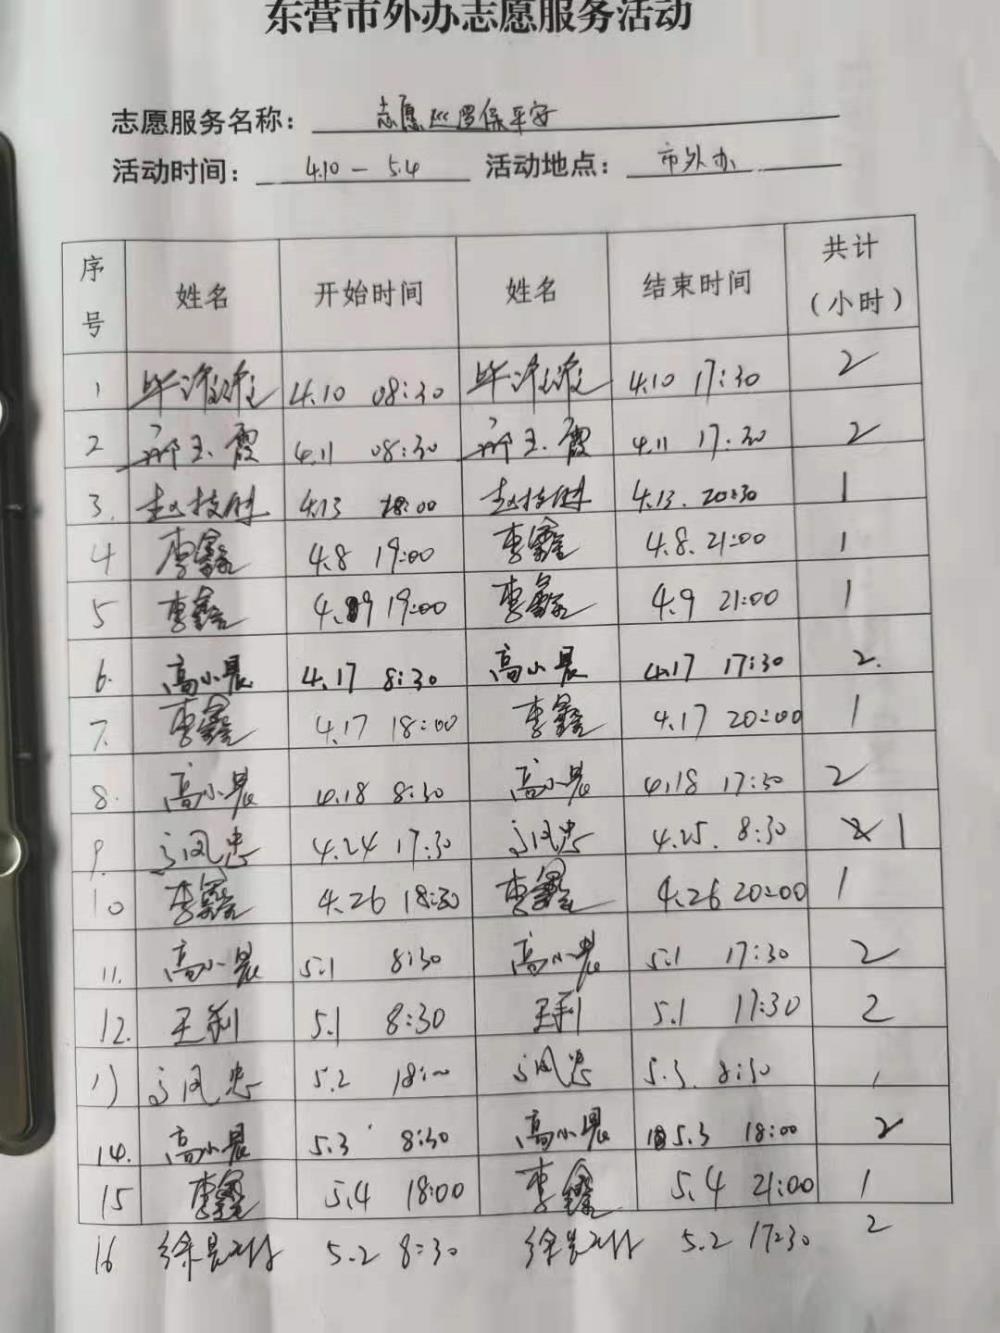 东营市外办志愿服务活动
志愿服务名称： 志愿巡逻保平安
活动时间： 4.10 — 5.4 活动地点： 市外办
序号 姓名 开始时间 姓名 结束时间 共计（小时）
1 4.10 08:30 4.10 17:30 2
2 4.11 08:30 4.11 17:30 2
3. 4.13 18:00 4.13. 20:30 1
4 李鑫 4.8 19:00 李鑫 4.8. 21:00 1
5 李鑫 4.9 19:00 李鑫 4.9 21:00 1
6. 高小晨 4.17 8:30 高小晨 4.17 17:30 2.
7. 李鑫 4.17 18:00 李鑫 4.17 20:00 1
8. 高小晨 4.18 8:30 高小晨 4.18 17:30 2
9. 4.24 17:30 4.25. 8:30 1
10 李鑫 4.26 18:30 李鑫 4.26 20:00 1
11. 高小晨 5.1 8:30 高小晨 5.1 17:30 2
12. 王利 5.1 8:30 王利 5.1 17:30 2
13 5.2 18:00 5.3. 8:30 1
14. 高小晨 5.3 8:30 高小晨 5.3 18:00 2
15 李鑫 5.4 18:00 李鑫 5.4 21:00 1
16 5.2 8:30 5.2 17:30 2